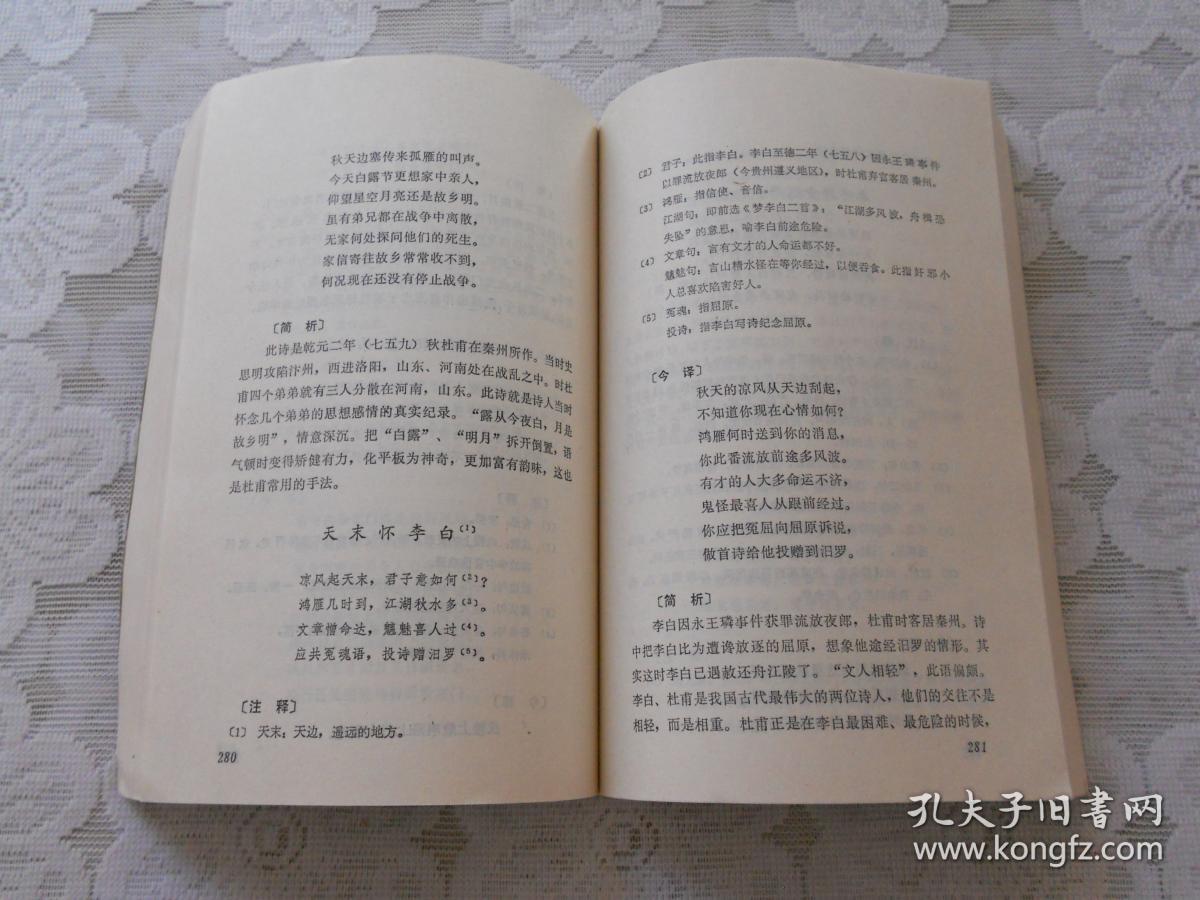 秋天边塞传来孤雁的叫声。
今天白露节更想家中亲人，
仰望星空月亮还是故乡明。
虽有弟兄都在战争中离散，
无家何处探问他们的死生。
家信寄往故乡常常收不到，
何况现在还没有停止战争。
〔简 析〕
此诗是乾元二年（七五九）秋杜甫在秦州所作。当时史
思明攻陷汴州，西进洛阳，山东、河南处在战乱之中。时杜
甫四个弟弟就有三人分散在河南，山东。此诗就是诗人当时
怀念几个弟弟的思想感情的真实纪录。“露从今夜白，月是
故乡明”，情意深沉。把“白露”、“明月”拆开倒置，语
气顿时变得矫健有力，化平板为神奇，更加富有韵味，这也
是杜甫常用的手法。
天末怀李白⑴
凉风起天末，君子意如何⑵？
鸿雁几时到，江湖秋水多⑶。
文章憎命达，魑魅喜人过⑷。
应共冤魂语，投诗赠汨罗⑸。
〔注 释〕
⑴ 天末：天边，遥远的地方。
280
⑵ 君子：此指李白。李白至德二年（七五八）因永王璘事件
以罪流放夜郎（今贵州遵义地区），时杜甫弃官客居秦州。
⑶ 鸿雁：指信使、音信。
江湖句：即前选《梦李白二首》：“江湖多风波，舟楫恐
失坠”的意思，喻李白前途危险。
⑷ 文章句：言有文才的人命运都不好。
魑魅句：言山精水怪在等你经过，以便吞食。此指奸邪小
人总喜欢陷害好人。
⑸ 冤魂：指屈原。
投诗：指李白写诗纪念屈原。
〔今 译〕
秋天的凉风从天边刮起，
不知道你现在心情如何？
鸿雁何时送到你的消息，
你此番流放前途多风波。
有才的人大多命运不济，
鬼怪最喜人从跟前经过。
你应把冤屈向屈原诉说，
做首诗给他投赠到汨罗。
〔简 析〕
李白因永王璘事件获罪流放夜郎，杜甫时客居秦州。诗
中把李白比为遭谗放逐的屈原，想象他途经汨罗的情形。其
实这时李白已遇赦还舟江陵了。“文人相轻”，此语偏颇。
李白、杜甫是我国古代最伟大的两位诗人，他们的交往不是
相轻，而是相重。杜甫正是在李白最困难、最危险的时候，
281
孔夫子旧书网
www.kongfz.com